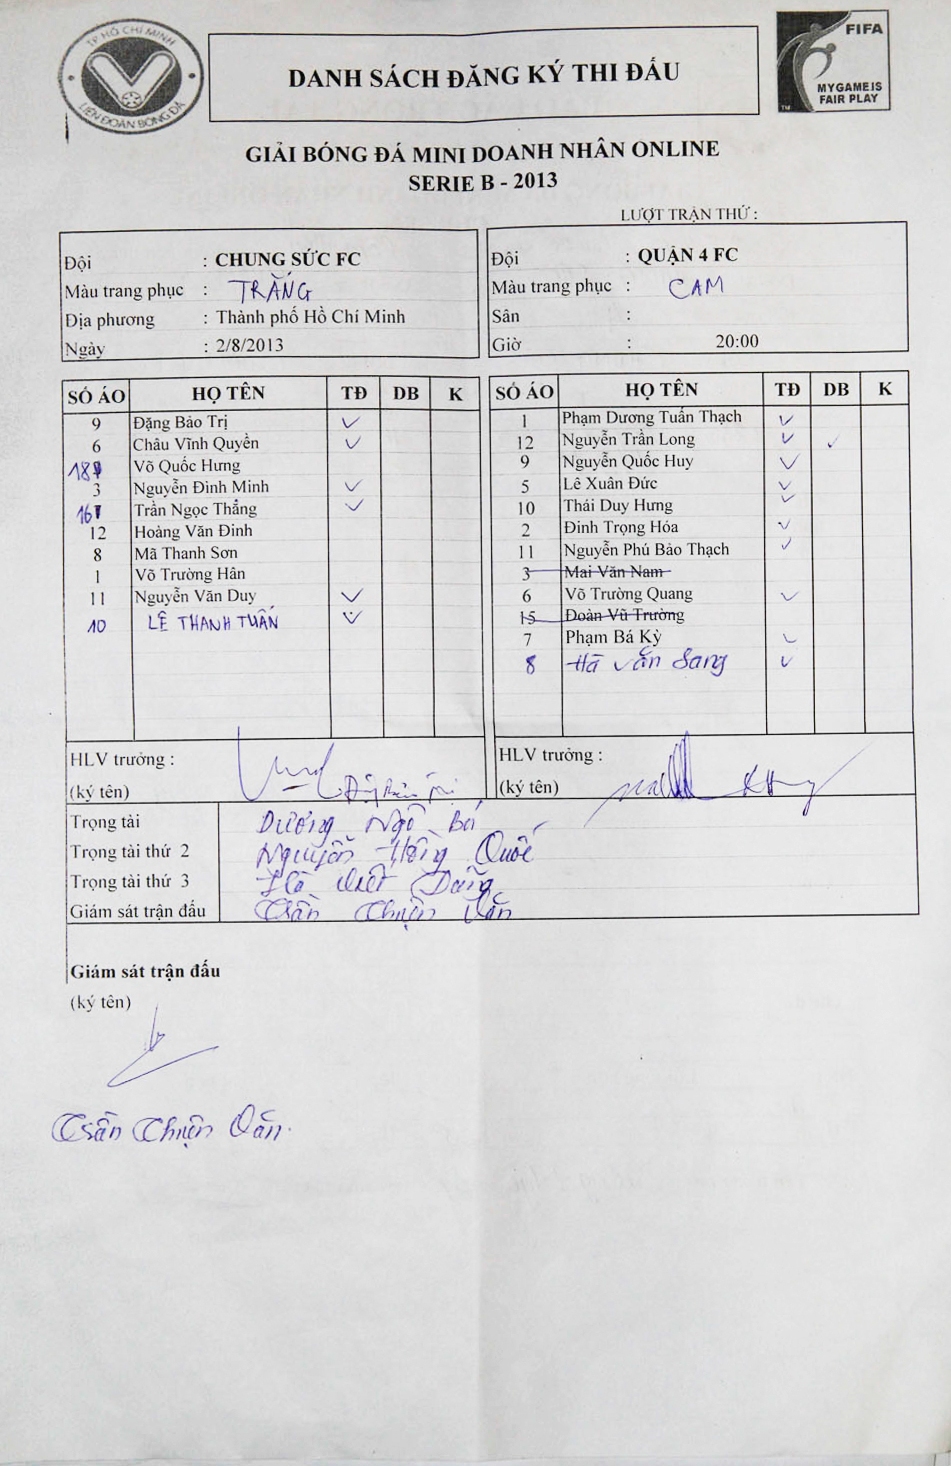 TP HỒ CHÍ MINH
LIÊN ĐOÀN BÓNG ĐÁ
DANH SÁCH ĐĂNG KÝ THI ĐẤU
FIFA
MYGAMEIS
FAIR PLAY
TM
GIẢI BÓNG ĐÁ MINI DOANH NHÂN ONLINE
SERIE B - 2013
LƯỢT TRẬN THỨ :
Đội : CHUNG SỨC FC
Màu trang phục : TRẮNG
Địa phương : Thành phố Hồ Chí Minh
Ngày : 2/8/2013
Đội : QUẬN 4 FC
Màu trang phục : CAM
Sân :
Giờ : 20:00
SỐ ÁO HỌ TÊN TĐ DB K
9 Đặng Bảo Trị
6 Châu Vĩnh Quyền
18 Võ Quốc Hưng
3 Nguyễn Đình Minh
16 Trần Ngọc Thắng
12 Hoàng Văn Đinh
8 Mã Thanh Sơn
1 Võ Trường Hân
11 Nguyễn Văn Duy
10 LÊ THANH TUẤN
SỐ ÁO HỌ TÊN TĐ DB K
1 Phạm Dương Tuấn Thạch
12 Nguyễn Trần Long
9 Nguyễn Quốc Huy
5 Lê Xuân Đức
10 Thái Duy Hưng
2 Đinh Trọng Hóa
11 Nguyễn Phú Bảo Thạch
3 Mai Văn Nam
6 Võ Trường Quang
15 Đoàn Vũ Trường
7 Phạm Bá Kỳ
8 Hà Văn Sang
HLV trưởng :
(ký tên)
HLV trưởng :
(ký tên)
Trọng tài Dương Ngô Bá
Trọng tài thứ 2 Nguyễn Hồng Quốc
Trọng tài thứ 3 Hồ Việt Dũng
Giám sát trận đấu Trần Thiện Văn
Giám sát trận đấu
(ký tên)
Trần Thiện Văn